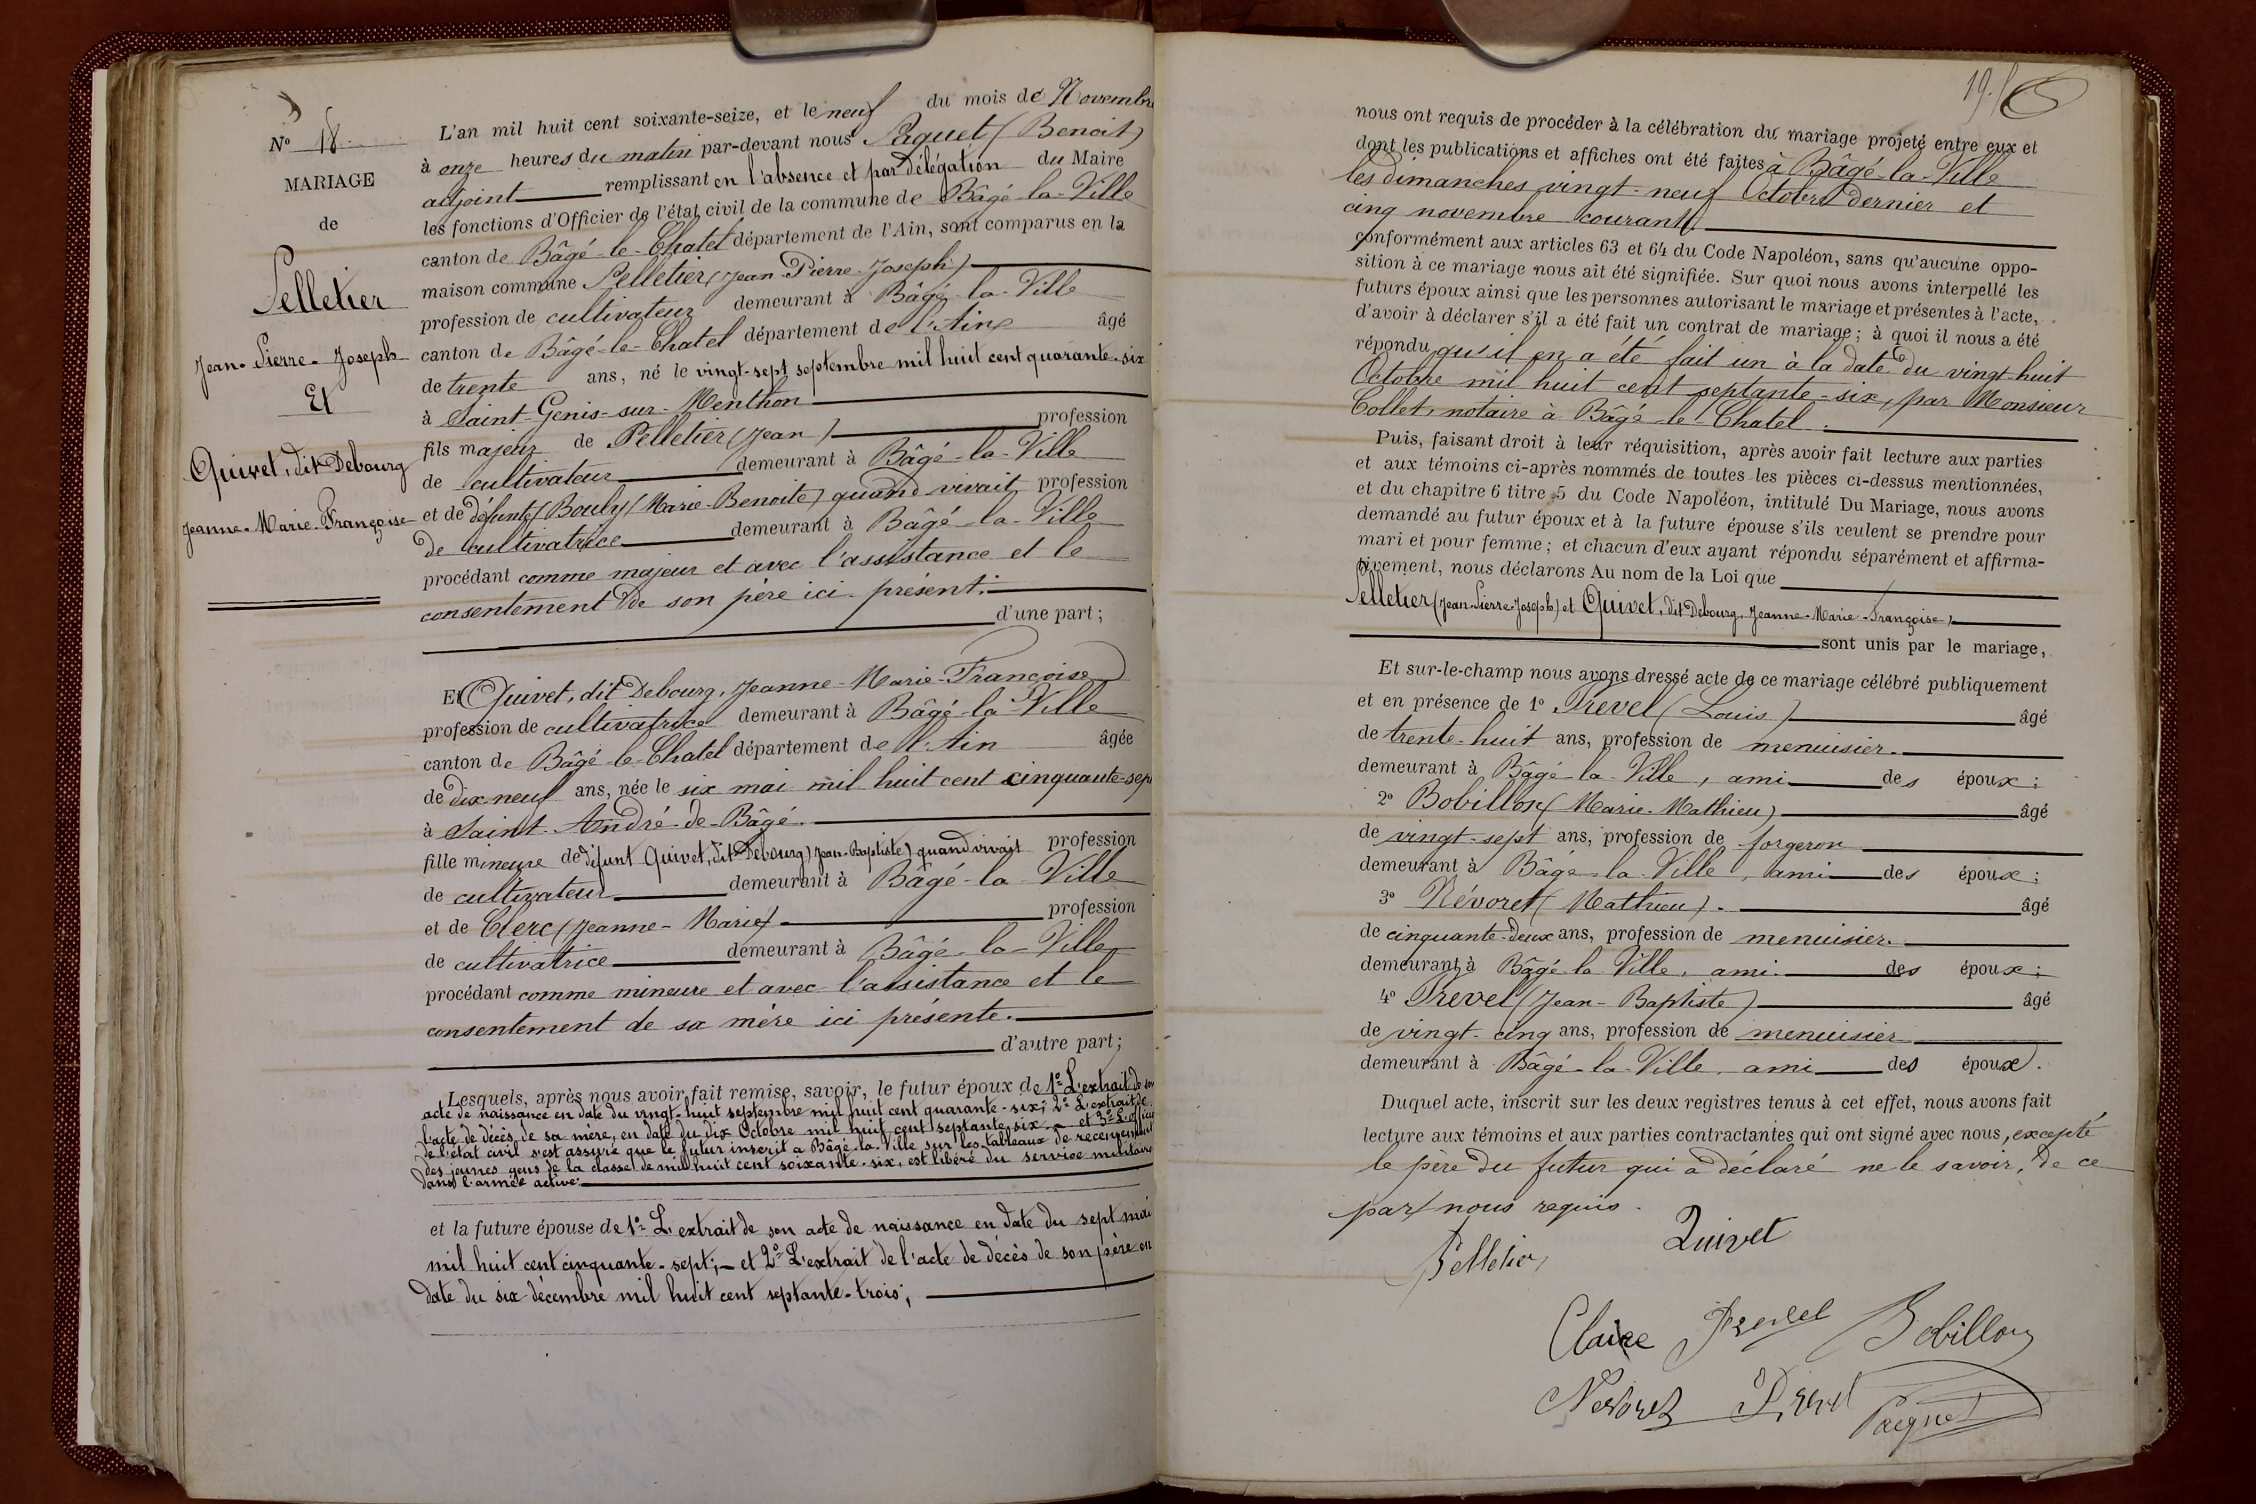 Nº 18
MARIAGE
de
Pelletier
Jean-Pierre-Joseph
Et
Quivet, dit Debourg
Jeanne-Marie-Françoise
L'an mil huit cent soixante-seize, et le neuf du mois de Novembre
à onze heures du matin par-devant nous Paquet (Benoit)
adjoint remplissant en l'absence et par délégation du Maire
les fonctions d'Officier de l'état civil de la commune de Bâgé-la-Ville
canton de Bâgé-le-Chatel département de l'Ain, sont comparus en la
maison commune Pelletier (Jean-Pierre-Joseph)
profession de cultivateur demeurant à Bâgé-la-Ville
canton de Bâgé-le-Chatel département de l'Ain âgé
de trente ans, né le vingt-sept septembre mil huit cent quarante-six
à Saint-Genis-sur-Menthon
fils majeur de Pelletier (Jean) profession
de cultivateur demeurant à Bâgé-la-Ville
et de défunte Bouly (Marie-Benoite) quand vivait profession
de cultivatrice demeurant à Bâgé-la-Ville
procédant comme majeur et avec l'assistance et le
consentement de son père ici présent.
d'une part;
Et Quivet, dit Debourg, Jeanne-Marie-Françoise
profession de cultivatrice demeurant à Bâgé-la-Ville
canton de Bâgé-le-Chatel département de l'Ain âgée
de dix-neuf ans, née le six mai mil huit cent cinquante-sept
à Saint-André-de-Bâgé.
fille mineure de défunt Quivet, dit Debourg) Jean-Baptiste) quand vivait profession
de cultivateur demeurant à Bâgé-la-Ville
et de Clerc (Jeanne-Marie) profession
de cultivatrice demeurant à Bâgé-la-Ville
procédant comme mineure et avec l'assistance et le
consentement de sa mère ici présente.
d'autre part;
Lesquels, après nous avoir fait remise, savoir, le futur époux de 1º L'extrait de son
acte de naissance en date du vingt-huit septembre mil huit cent quarante-six; 2º L'extrait de
l'acte de décès de sa mère, en date du dix Octobre mil huit cent septante-six et 3º L'officier
de l'état civil s'est assuré que le futur inscrit à Bâgé-la-Ville sur les tableaux de recensement
des jeunes gens de la classe de mil huit cent soixante-six, est libéré du service militaire
dans l'armée active.
et la future épouse de 1º L'extrait de son acte de naissance en date du sept mai
mil huit cent cinquante-sept; et 2º L'extrait de l'acte de décès de son père en
date du six décembre mil huit cent septante-trois;
19.
nous ont requis de procéder à la célébration du mariage projeté entre eux et
dont les publications et affiches ont été faites à Bâgé-la-Ville
les dimanches vingt-neuf Octobre dernier et
cinq novembre courant.
conformément aux articles 63 et 64 du Code Napoléon, sans qu'aucune oppo-
sition à ce mariage nous ait été signifiée. Sur quoi nous avons interpellé les
futurs époux ainsi que les personnes autorisant le mariage et présentes à l'acte,
d'avoir à déclarer s'il a été fait un contrat de mariage; à quoi il nous a été
répondu qu'il en a été fait un à la date du vingt-huit
Octobre mil huit cent septante-six, par Monsieur
Collet, notaire à Bâgé-le-Chatel.
Puis, faisant droit à leur réquisition, après avoir fait lecture aux parties
et aux témoins ci-après nommés de toutes les pièces ci-dessus mentionnées,
et du chapitre 6 titre 5 du Code Napoléon, intitulé Du Mariage, nous avons
demandé au futur époux et à la future épouse s'ils veulent se prendre pour
mari et pour femme; et chacun d'eux ayant répondu séparément et affirma-
tivement, nous déclarons Au nom de la Loi que
Pelletier (Jean-Pierre-Joseph) et Quivet, dit Debourg, Jeanne-Marie-Françoise,
sont unis par le mariage,
Et sur-le-champ nous avons dressé acte de ce mariage célébré publiquement
et en présence de 1º Prevel (Louis) âgé
de trente-huit ans, profession de menuisier.
demeurant à Bâgé-la-Ville, ami des époux;
2º Bobillon (Marie-Mathieu) âgé
de vingt-sept ans, profession de forgeron
demeurant à Bâgé-la-Ville, ami des époux;
3º Névoret (Mathieu). âgé
de cinquante-deux ans, profession de menuisier.
demeurant à Bâgé-la-Ville, ami des époux;
4º Prevel (Jean-Baptiste) âgé
de vingt-cinq ans, profession de menuisier
demeurant à Bâgé-la-Ville, ami des époux.
Duquel acte, inscrit sur les deux registres tenus à cet effet, nous avons fait
lecture aux témoins et aux parties contractantes qui ont signé avec nous, excepté
le père du futur qui a déclaré ne le savoir, de ce
par nous requis.
Pelletier
Quivet
Claire Prevel Bobillon
Nevoret Prevel Paquet